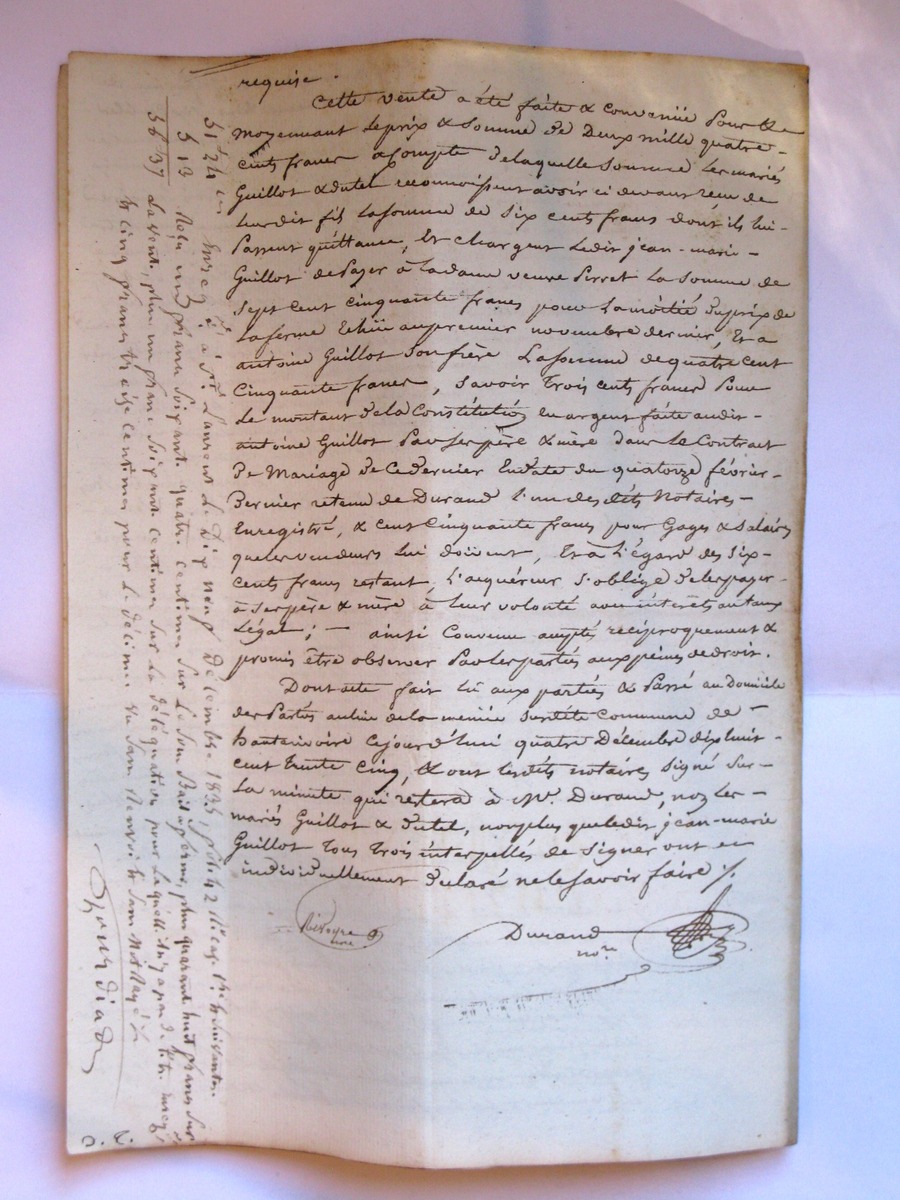 requise.
Cette vente a été faite & convenüe pour & 
moyennant le prix & somme de Deux mille quatre-
cents francs acompte de laquelle somme les mariés
Guillot & dutel reconnoissent avoir ci devant recu de
leur dit fils la somme de six cents francs dont ils lui-
passent quittance, Et chargent ledit jean-marie-
Guillot de payer à la dame veuve Perret la somme de
Sept cent cinquante francs pour la moitié du prix de
la ferme Echüe au premier novembre dernier, Et a
antoine Guillot son frère la somme de quatre cent
Cinquante francs, Savoir Trois cents francs pour
le montant de la Constitution en argent faite audit-
antoine Guillot par ses père & mère dans le Contract
De Mariage de ce dernier En date du quatorze février-
Dernier retenu de Durand l'un des dits Notaires-
Enregistré, & cent Cinquante francs pour Gages & Salaires
que les vendeurs lui doivent, Et à l'égard des six-
cents francs restant, l'acquéreur s'oblige de les payer-
à ses père & mère à leur volonté avec intérêts au taux
Légal; - ainsi Convenu accepté réciproquement &
promis être observer par les parties aux peines de droit.
Dont acte fait lu aux parties & Passé au Domicile
des Parties au lieu de la commune de
ce jourd'hui quatre Décembre dix huit-
cent trente cinq, & ont les dits notaires Signé sur-
La minute qui restera à Me. Durand, non les-
mariés Guillot & dutel, non plus que ledit jean-marie
Guillot Tous Trois interpellés de Signer ont
individuellement déclaré ne le savoir faire ./.
Durand
nore
51 24
5 13
56 37
Enregé à St. Laurent le Dix neuf Décembre 1835, folio
Reçu franc soixante quatre centimes sur le sou Bail à ferme, plus quarante huit francs sur
la vente, plus un franc soixante centimes sur la délégation pour laquelle il n'y a pas de titre enregé
& cinq francs treize centimes pour le décime.